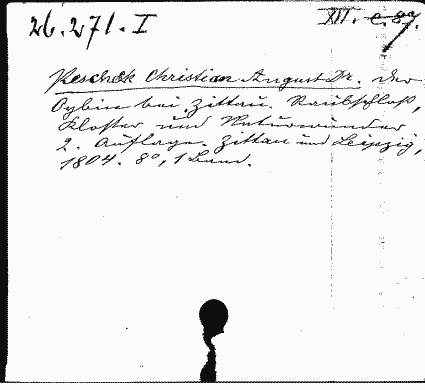 26.271.I
XII. c. 87.
Peschek Christian August Dr. Der
Oybin bei Zittau. Raubschloß,
Kloster und Naturwunder
2. Auflage. Zittau und Leipzig,
1804. 8°, 1 Band.